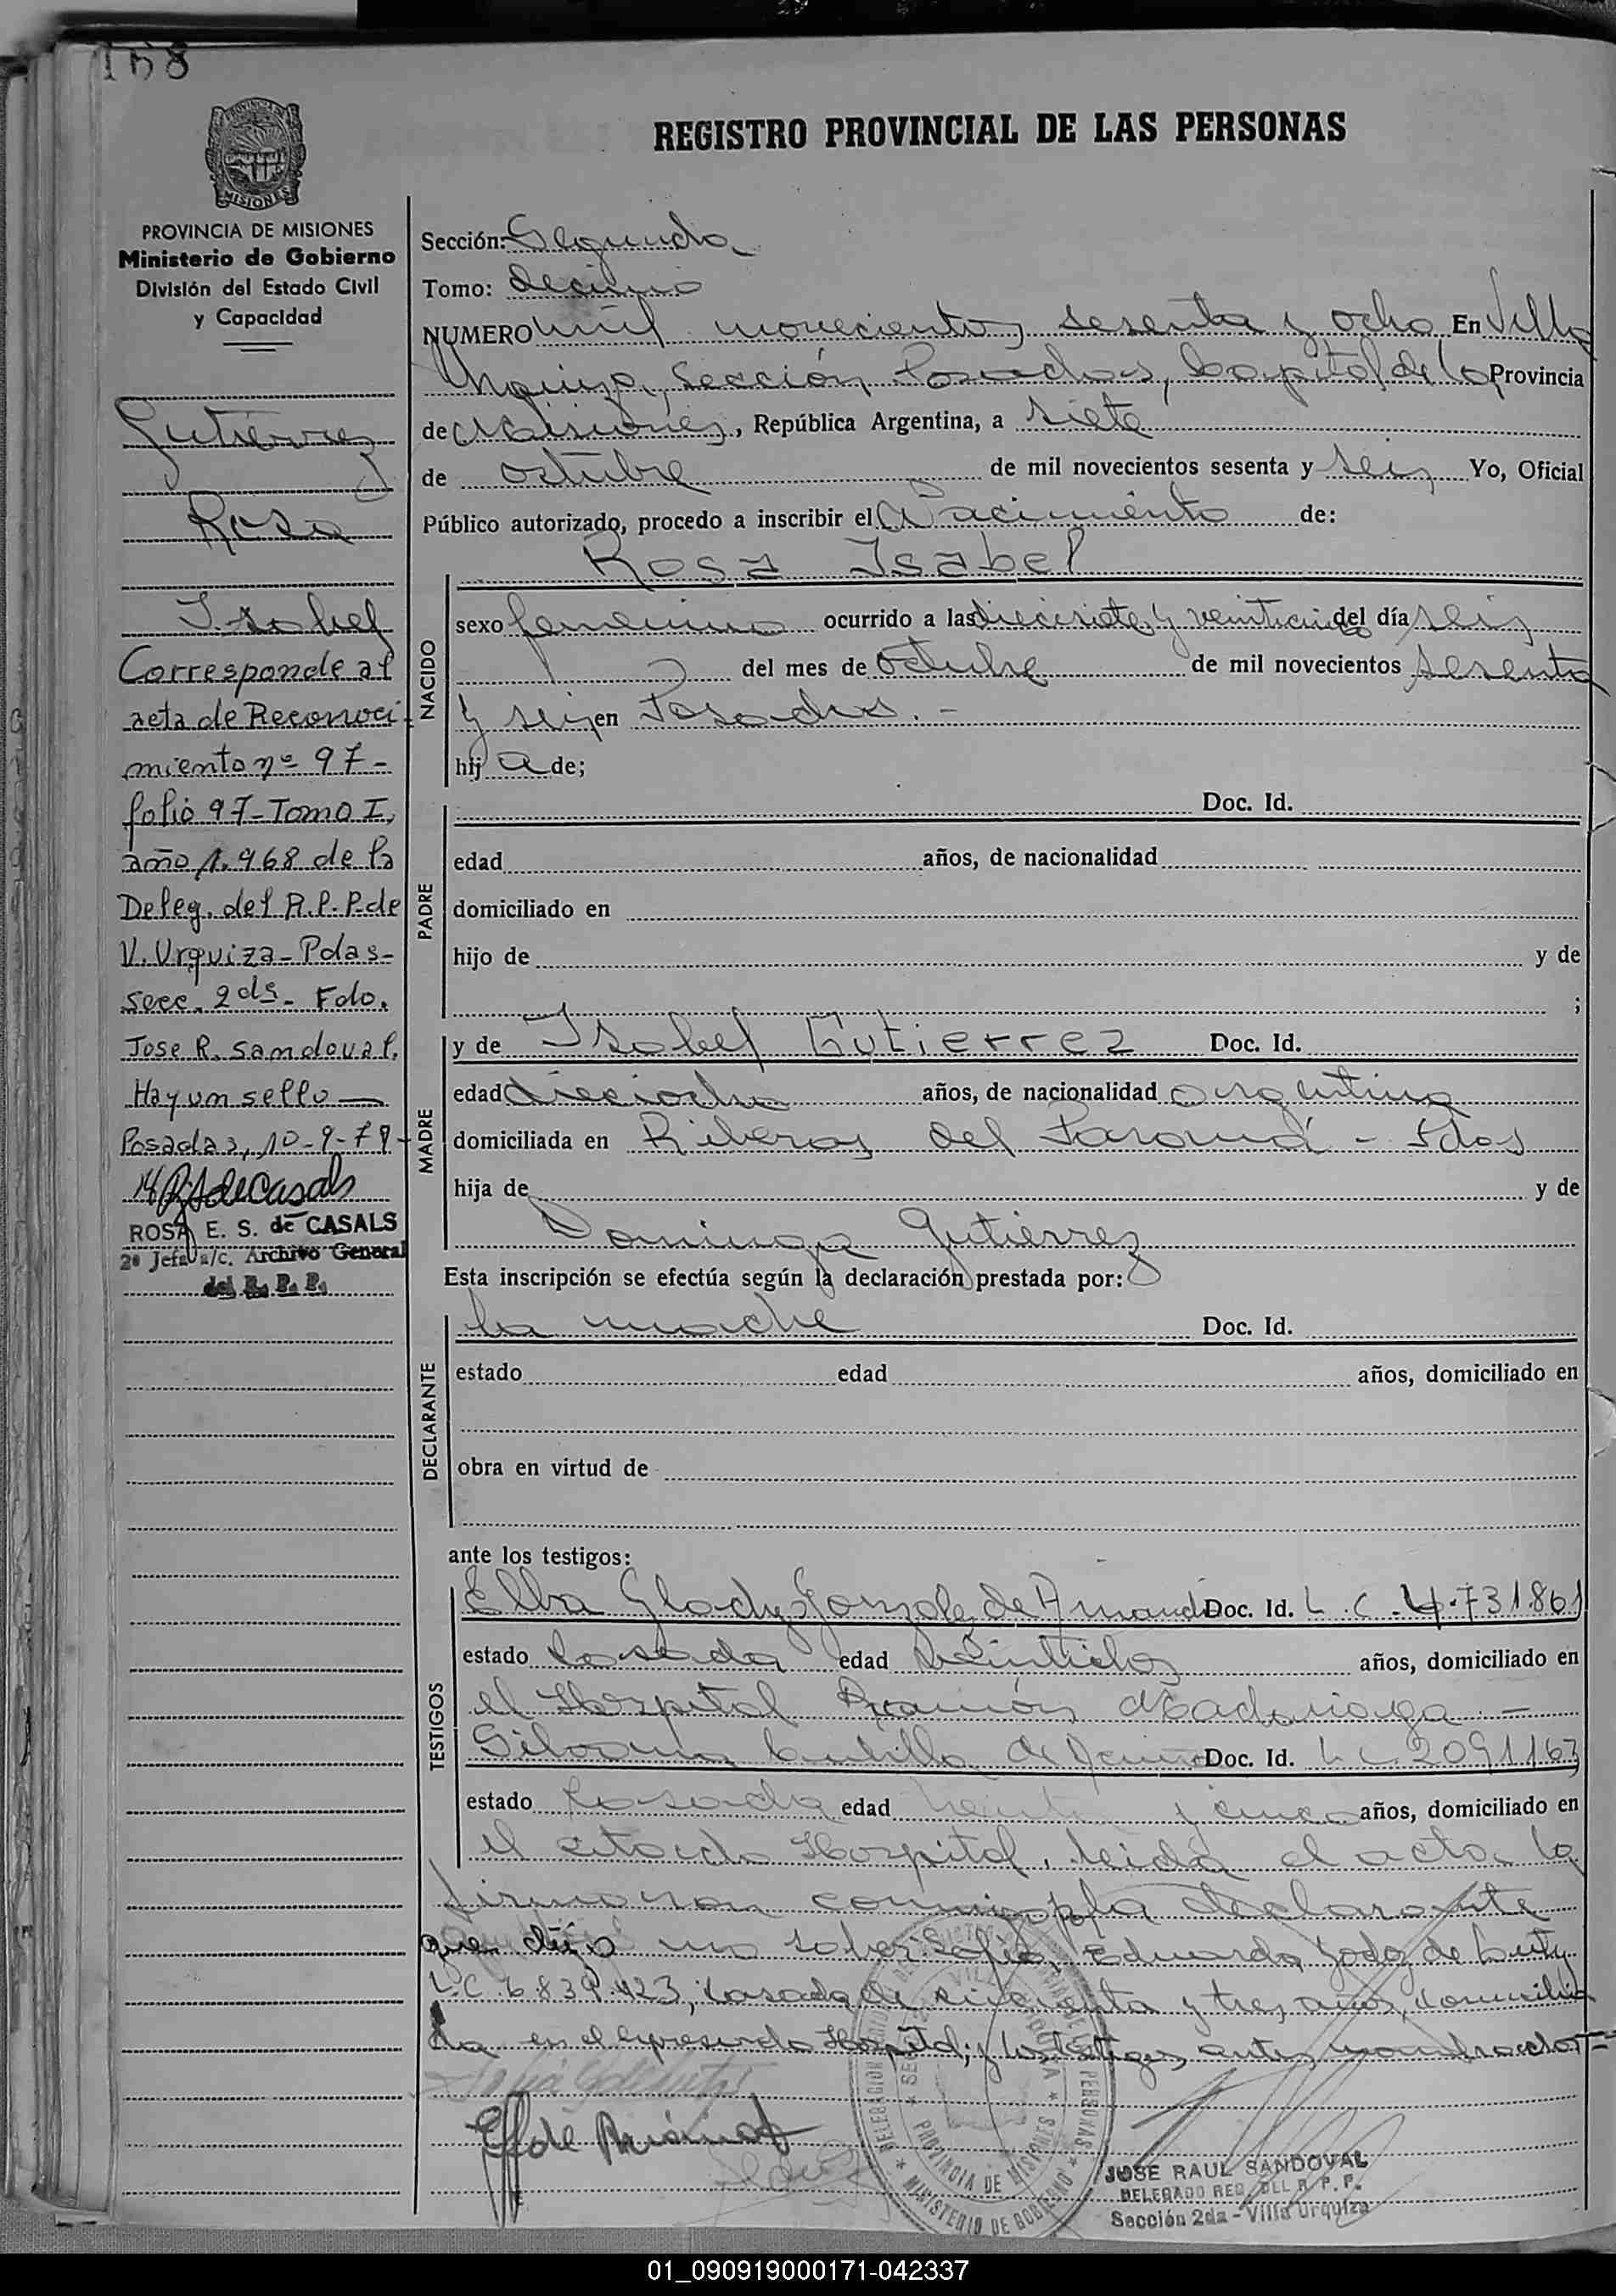 168
MISIONES
PROVINCIA DE MISIONES
Ministerio de Gobierno
División del Estado Civil
y Capacidad
Gutierrez
Rosa
Isabel
Corresponde al
acta de Reconoci-
miento nº 97-
folio 97- Tomo I,
año 1.968 de la
Deleg. del R.P.P. de
V. Urquiza- Pdas-
secc. 2da- Fdo.
Jose R. Sandoval.
Hay un sello—
Posadas, 10-9-79-
ROSA E. S. de CASALS
2º Jefa a/c. Archivo General
del R. P. P.
REGISTRO PROVINCIAL DE LAS PERSONAS
Sección: Segunda
Tomo: decimo
NUMERO mil novecientos sesenta y ocho En Villa
Urquiza, Sección Posadas, Capital de la Provincia
de Misiones, República Argentina, a siete
de octubre de mil novecientos sesenta y seis Yo, Oficial
Público autorizado, procedo a inscribir el Nacimiento de:
Rosa Isabel
NACIDO
sexo femenino ocurrido a las diecisiete y veinticinco del día seis
del mes de Octubre de mil novecientos sesenta
y seis en Posadas.-
hij a de;
PADRE
Doc. Id.
edad años, de nacionalidad
domiciliado en
hijo de y de
;
MADRE
y de Isabel Gutierrez Doc. Id.
edad dieciocho años, de nacionalidad argentina
domiciliada en Riberas del Paraná - Pdas
hija de y de
Dominga Gutierrez
Esta inscripción se efectúa según la declaración prestada por:
DECLARANTE
La madre Doc. Id.
estado edad años, domiciliado en
obra en virtud de
ante los testigos:
TESTIGOS
Elba Gladys Gonzalez de Doc. Id. L.C. 4.731.861
estado Casada edad veintidos años, domiciliado en
el Hospital Ramón Madariaga.-
Silvana de Doc. Id. L.C. 2091163
estado Casada edad y cinco años, domiciliado en
el citado Hospital. Leida el acta la
firmaron conmigo p/la declarante
que dijo no saber Sofia Eduarda Godoy de
L.C. 6.839.423, casada de cincuenta y tres años, domicilia
da en el expresado Hospital; y los testigos antes nombrados.-
PROVINCIA DE MISIONES
MINISTERIO DE GOBIERNO
JOSE RAUL SANDOVAL
DELEGADO REG. DEL R. P. P.
Sección 2da - Villa Urquiza
01_090919000171-042337